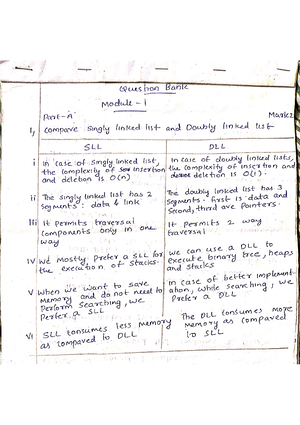 Question Bank
Module - 1
Part-A
Marks 2
1, compare singly linked list and Doubly linked list
SLL
DLL
i In case of singly linked list,
the complexity of insertion
and deletion is O(n)
In case of doubly linked lists,
the complexity of insertion and
deletion is O(1).
ii The singly linked list has 2
segments: data & link
The doubly linked list has 3
segments. first is data and
Second, third are pointers.
iii It permits traversal
components only in one
way
It permits 2 way
traversal
IV We mostly prefer a SLL for
the execution of stacks.
we can use a DLL to
execute binary tree, heaps
and stacks
V When we want to save
Memory and do not need to
perform searching, we
Perfer a SLL
in case of better implement-
ation, while searching, we
Prefer a DLL
VI SLL consumes less memory
as compared to DLL
The DLL consumes more
memory as compared
to SLL